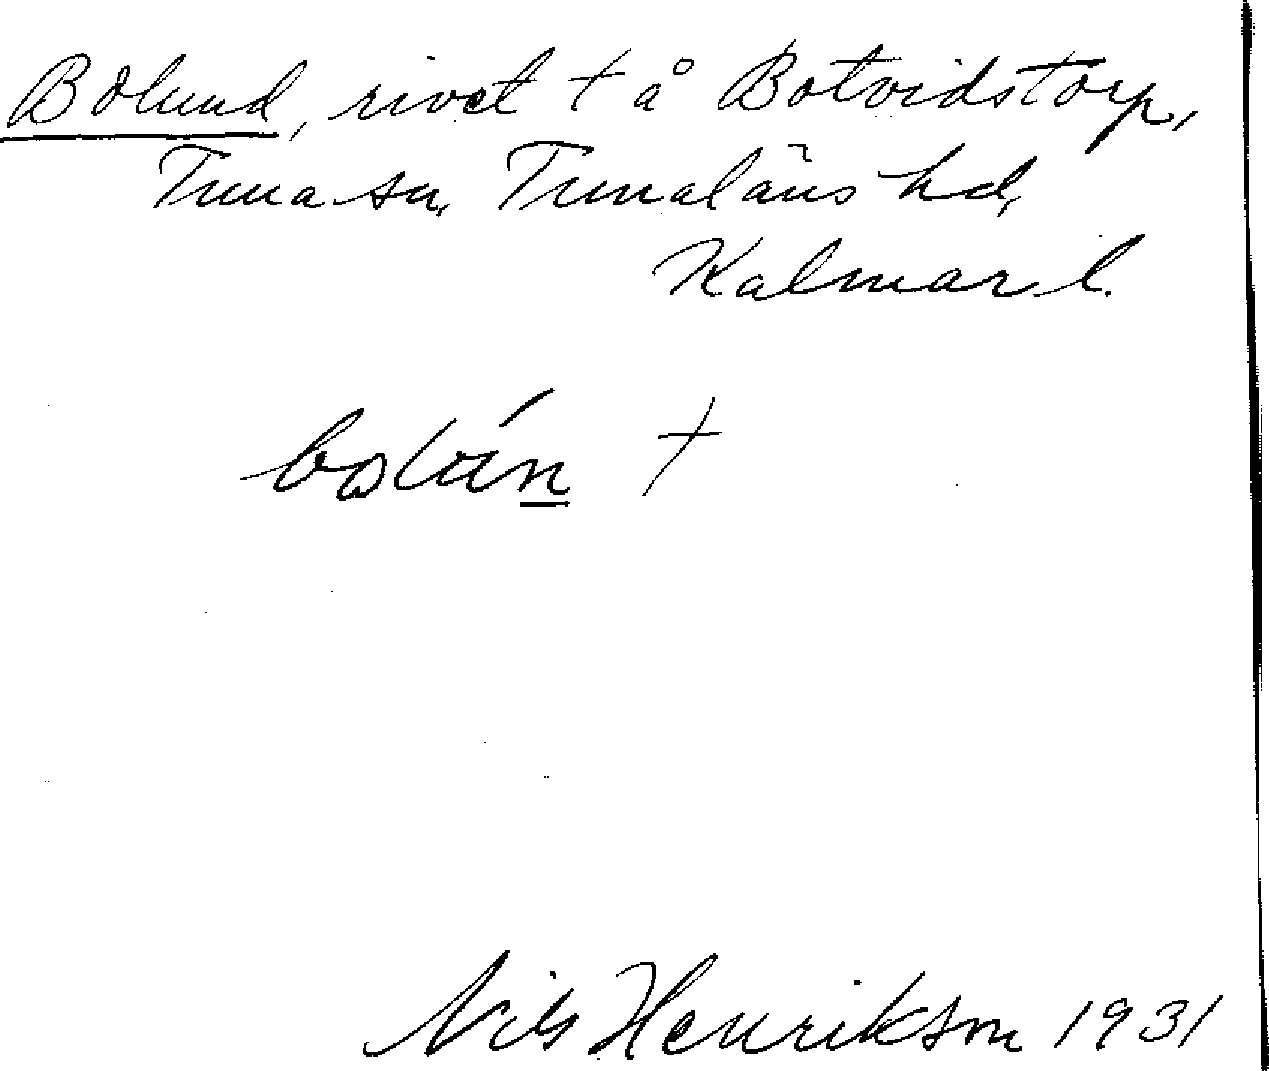 Bolund, rivet t å Botvidstorp,
Tuna sn, Tunaläns hd,
Kalmar l.
†
Nils Henrikson 1931